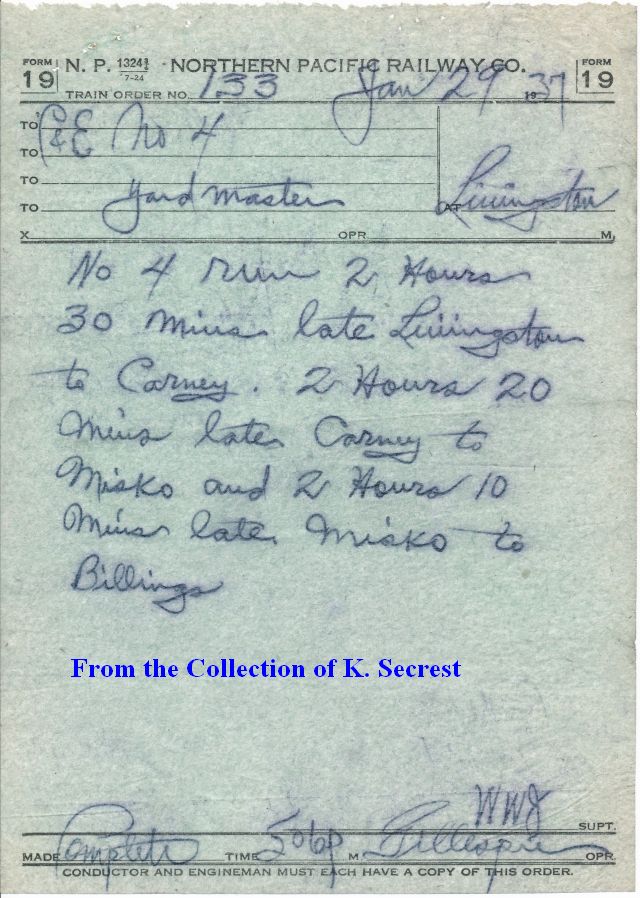 FORM 19
N. P. 1324½ 7-24 NORTHERN PACIFIC RAILWAY CO.
FORM 19
TRAIN ORDER NO. 133 Jan 29 1937
TO C&E No 4
TO
TO
TO Yard Master AT Livingston
X OPR. M.
No 4 run 2 Hours
30 Mins late Livingston
to Carney. 2 Hours 20
Mins late Carney to
Misko and 2 Hours 10
Mins late Misko to
Billings
From the Collection of K. Secrest
WWJ
SUPT.
MADE Complete TIME 506P M. Gillespie OPR.
CONDUCTOR AND ENGINEMAN MUST EACH HAVE A COPY OF THIS ORDER.